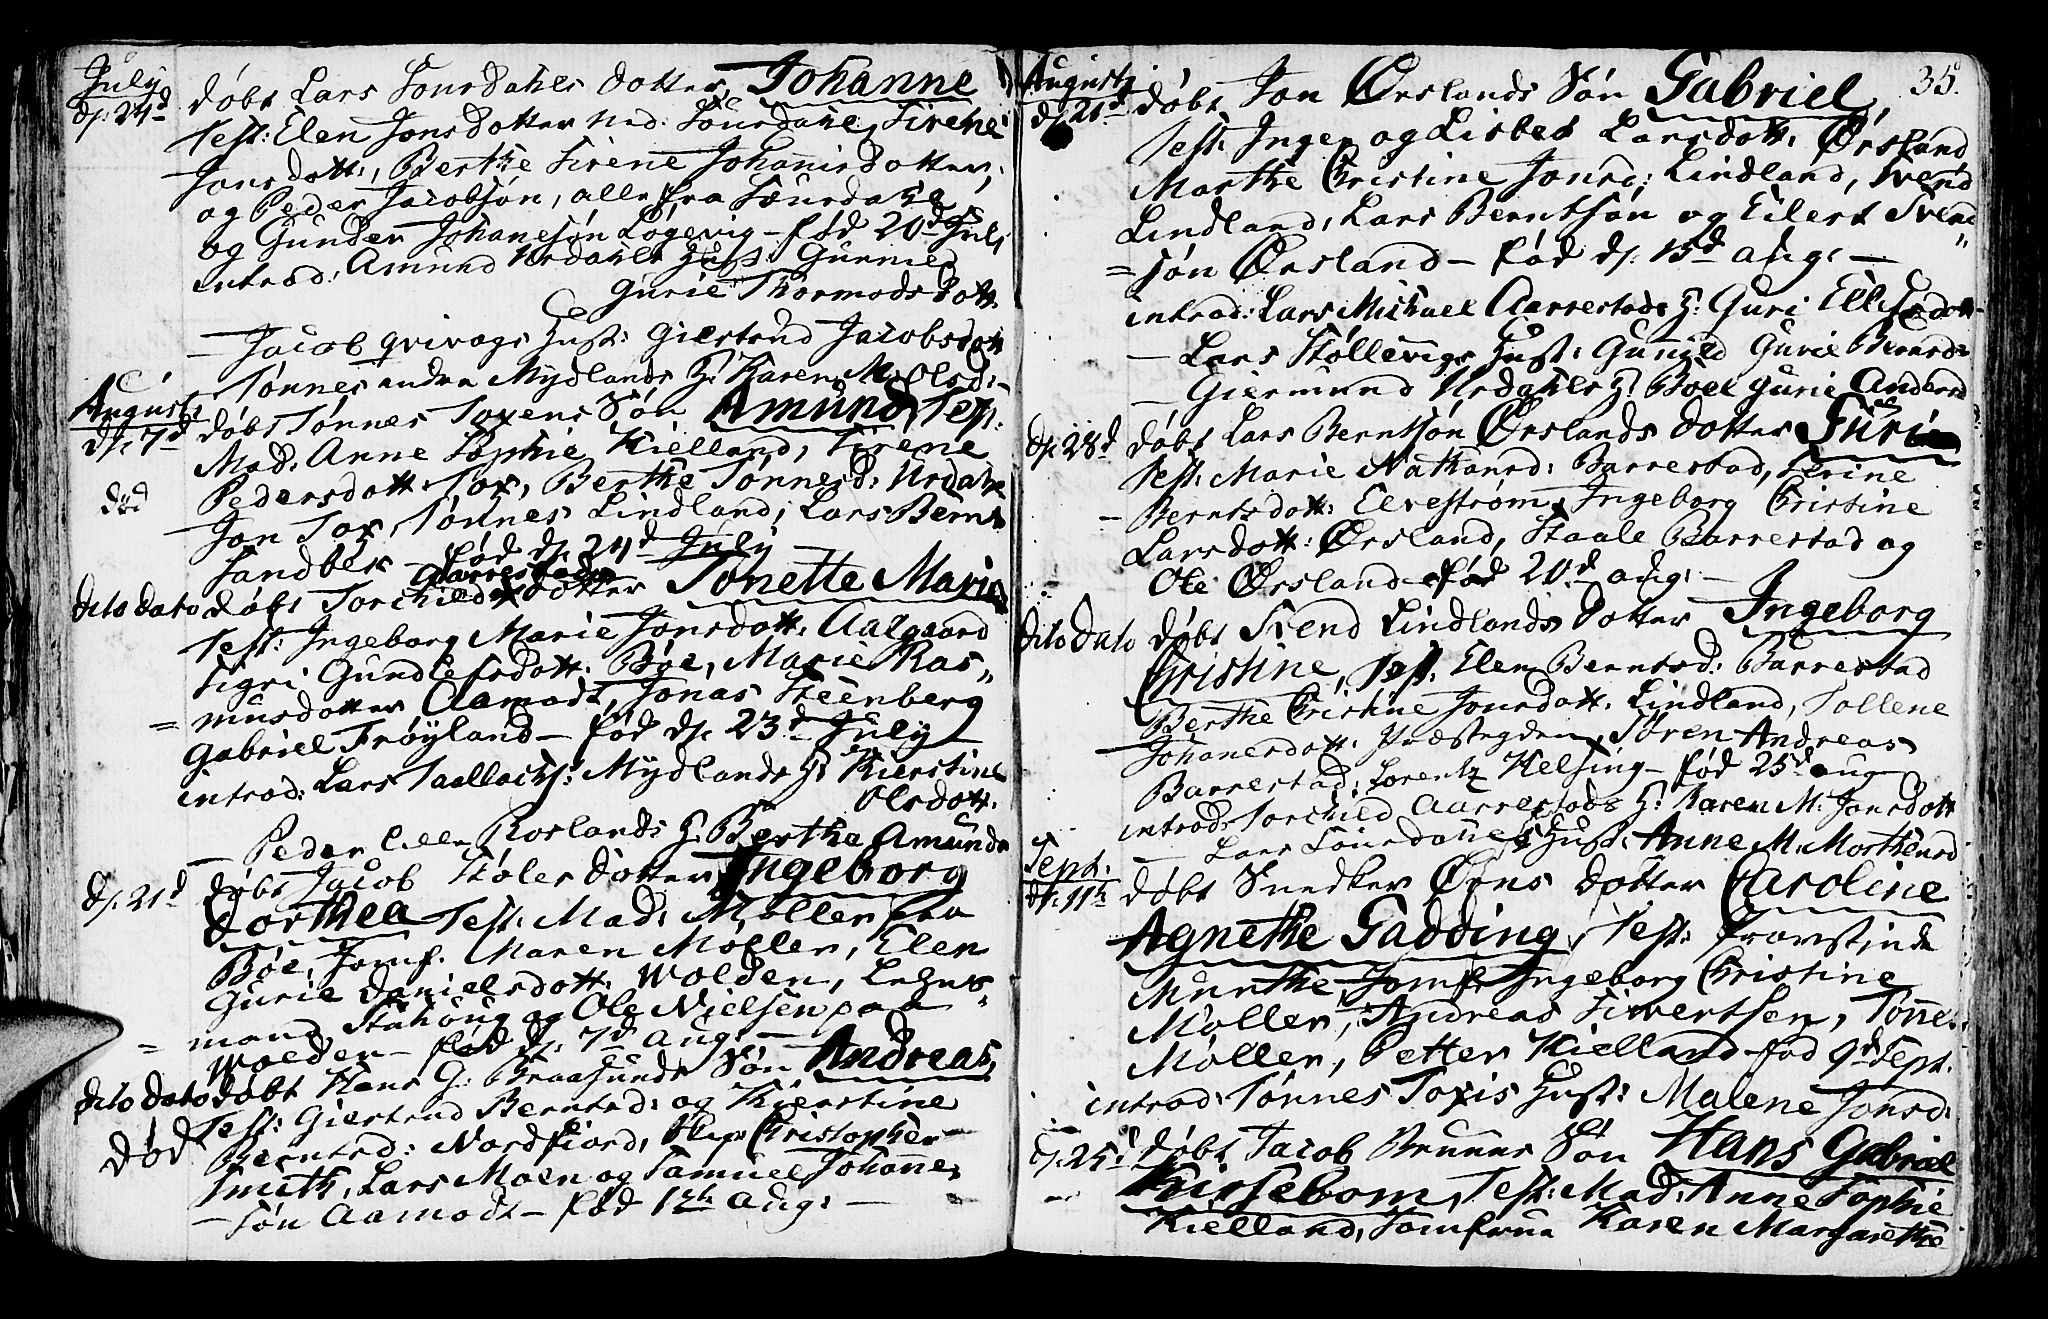 July
dj. 24d døbt Lars Sursdahls dotter Johanne
Test: Elen Jonsdotter ned: Sursdahl, Sirene
Jonsdott:, Berthe Sirene Johanisdotter,
og Peder Jacobsøn, alle fra
og Gunder Johanesøn Løgevig – fød 20d July
introd: Amund Urdahls Hust: Gunnild
Gurie Thormodsdott
– Jacob qvivogs Hust: Giertrud Jacobsdott
Tønnes andra Mydlands H: Karen M. Olsd:
August
dj. 7d døbt Tønnes Toxens Søn Amund, Test:
Mad: Anne Sophie Kielland, Sirene
død Pedersdott: Tox, Berthe Tønnesd: Urdahl
Jon Tox, Tønnes Lindland, Lars Bernt
Sandbek – fød dj. 24d July
Aarrestads
dito dato døbt Torchilds dotter Tonette Marie
Test: Ingeborg Marie Jonsdott: Aalgaard
Sigri Gundlefsdott: Bøe, Marie Ras„
= musdotter Aamodt, Jonas Steenberg
Gabriel Frøyland – fød dj. 23d July
introd: Lars Mydlands H: Kierstine
Olsdott:
– Peder Roslands H: Berthe Amunds
dj. 21d døbt Jacob Støles dotter Ingeborg
Dorthea Test: Mad: Møller fra
Bøe, Jomf. Maren Møller, Elen
Gurie Danielsdott: Wolden, Lehns„
= mand og Ole Nielsen paa
Wolden – fød dj. 7d Aug: –
dito dato døbt Hans G: Braasunds Søn Andreas,
Test: Giertrud Berntsd: og Kierstine
død Berntsd: Nordfiord, Skip: Christopher
Smith, Lars Moen og Samuel Johanne„
– søn Aamodt – fød 12th Aug: –
35.
Augusty
dj. 21d døbt Jon Ørslands Søn Gabriel,
Test: Inger og Lisbet Larsdott: Ørsland
Marthe Christine Jonsd: Lindland, Svend
Lindland, Lars Berntsøn og Eilert Svend„
= søn Ørsland – fød dj. 15d Aug: –
introd: Lars Michael Aarrestads H: Guri Ellefsdott:
– Lars Støllevigs Hust: Gunnild Gurie Berntsd:
– Giermund Urdahls H: Boel Gurie Andersd
dj. 28d døbt Lars Berntsøn Ørslands dotter
Test: Marie Nathansd: Barrestad, Serine
– Berntsdott: Elvestrøm, Ingeborg Christine
Larsdott: Ørsland, Staale Barrestad og
Ole Ørsland – fød 20d Aug: –
dito Dato døbt Svend Lindlands Dotter Ingeborg
Christine, Test: Elen Berntsd: Barrestad
Berthe Christine Jonsdott: Lindland, Tollene
Johanesdott: Søren Andreas
Barrestad, Lorentz Helsing – fød 25d Aug
introd: Torchild Aarrestads H: Karen M: Jonsdott
– Lars Sursdahls Hust: Anne M: Morthensd
Sept:
dj. 11th døbt Snedker Ørns dotter Caroline
Agnethe Gadding, Test: Provstinde
Munthe, Jomfr Ingeborg Christine
Møller, Andreas Sivertsen, Tønnes
Møller, Petter Kielland – fød 9d Sept.
introd: Tønnes Toxis Hust: Malene Jonsd:
dj. 25d døbt Jacob Bruuns Søn Hans Gabriel
Kirsebom, Test: Mad: Anne Sophie
Kielland, Jomfrue Karen Margarethe